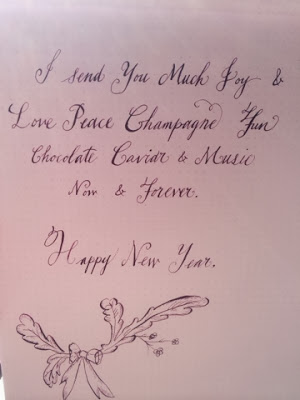 I send You Much Joy &
Love Peace Champagne Fun
Chocolate Caviar & Music
Now & Forever.
Happy New Year.